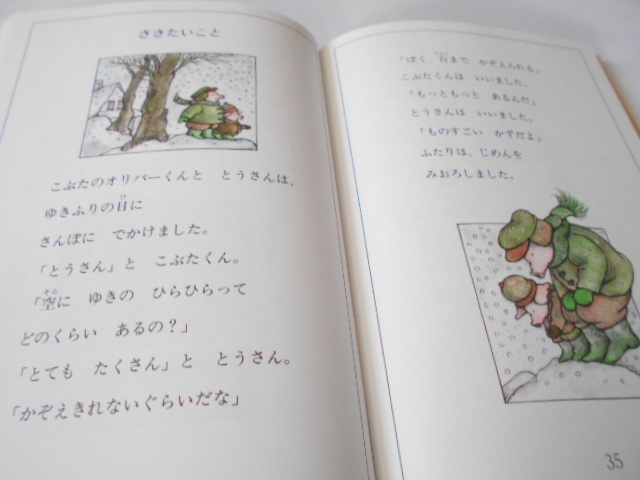 ききたいこと
こぶたのオリバーくんと とうさんは、
ゆきふりの日に
さんぽに でかけました。
「とうさん」と こぶたくん。
「空に ゆきの ひらひらって
どのくらい あるの？」
「とても たくさん」と とうさん。
「かぞえきれないぐらいだな」
「ぼく 百まで かぞえられる」
こぶたくんは いいました。
「もっともっと あるんだ」
とうさんは いいました。
「ものすごい かずだよ」
ふたりは、じめんを
みおろしました。
35